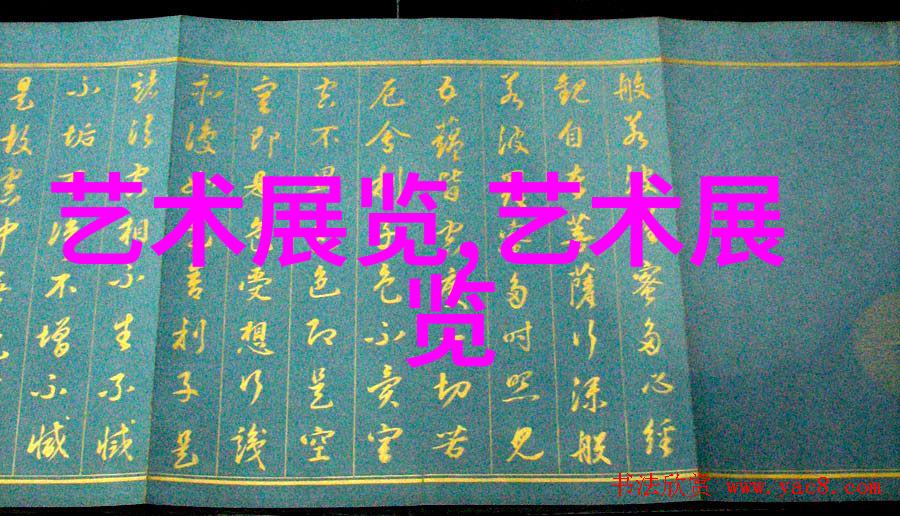 艺术展览,艺术展
览
般若波羅蜜多心經
觀自在菩薩行深般
若波羅蜜多時照見
五蘊皆空度一切苦
厄舍利子色不異空
空不異色色即是空
空即是色受想行識
亦復如是舍利子是
諸法空相不生不滅
不垢不淨不增不減
是故空中
书法欣赏 www.yac8.com